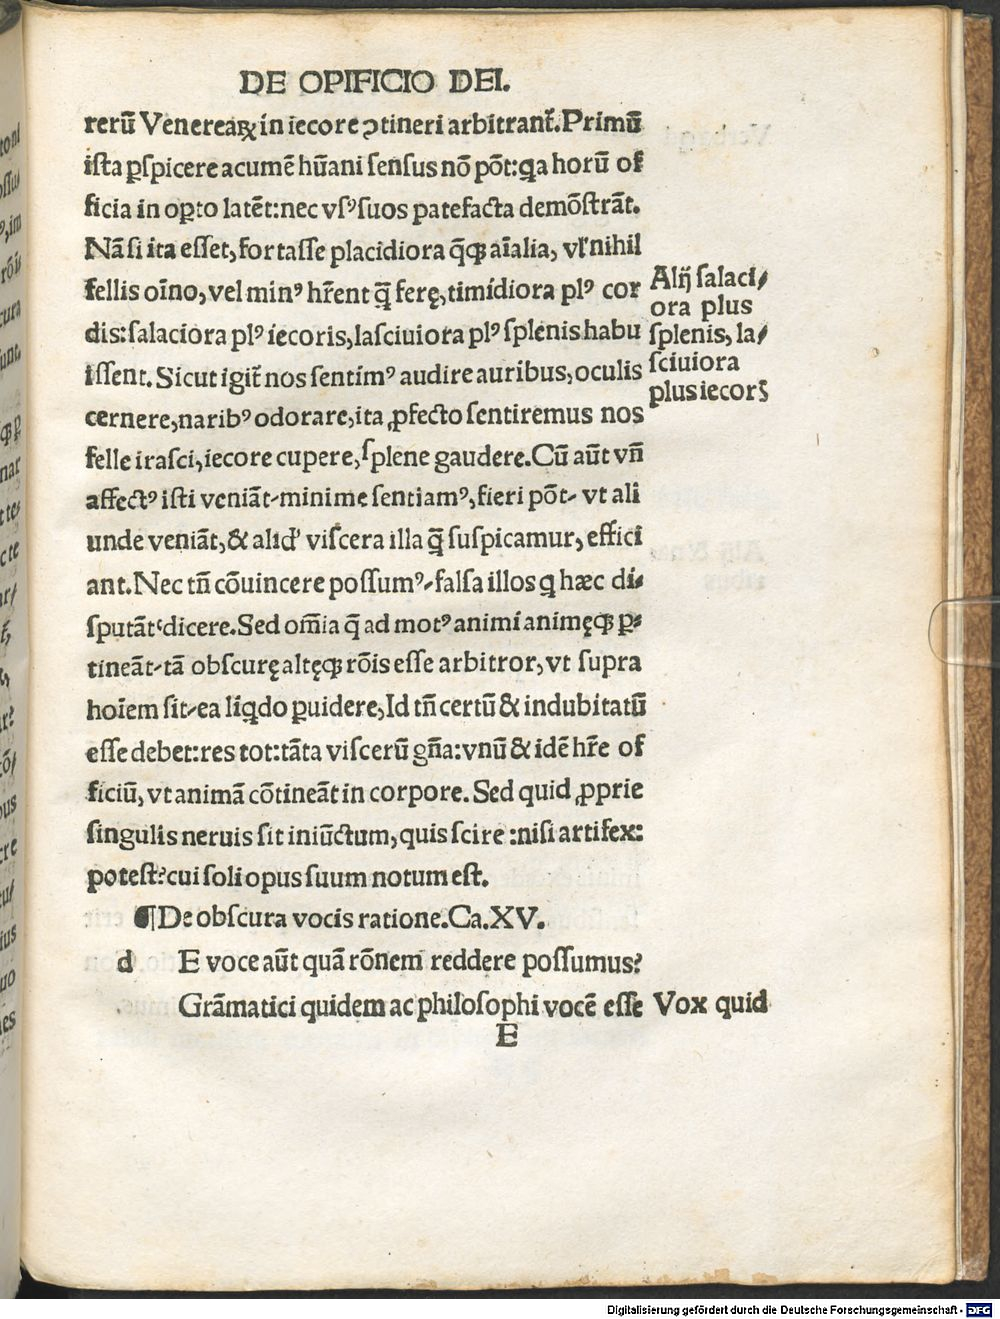 DE OPIFICIO DEI.
rerū Venereaꝝ in iecore ꝯtineri arbitrant᷑. Primū
ista ꝑspicere acumē hūani sensus nō pōt: qa horū of
ficia in opto latēt: nec vsꝰ suos patefacta demōstrāt.
Nā si ita esset, fortasse placidiora q̄q̄ aīalia, vl' nihil
fellis oīno, vel minꝰ hr̄ent q̄ ferę, timidiora plꝰ cor
dis: salaciora plꝰ iecoris, lasciuiora plꝰ splenis habu
issent. Sicut igit᷑ nos sentimꝰ audire auribus, oculis
cernere, naribꝰ odorare, ita ꝓfecto sentiremus nos
felle irasci, iecore cupere, splene gaudere. Cū aūt vn̄
affectꝰ isti veniāt-minime sentiamꝰ, fieri pōt- vt ali
unde veniāt, & aliđ viscera illa q̄ suspicamur, effici
ant. Nec tn̄ cōuincere possumꝰ-falsa illos q hæc di-
sputāt dicere. Sed om̄ia q̄ ad motꝰ animi animęqꝫ ꝑ-
tineāt-tā obscurę altęqꝫ rōis esse arbitror, vt supra
hoīem sit-ea liqdo ꝑuidere, Id tn̄ certū & indubitatū
esse debet: res tot: tāta viscerū gn̄a: vnū & idē hr̄e of
ficiū, vt animā cōtineāt in corpore. Sed quid ꝓprie
singulis neruis sit iniūctum, quis scire: nisi artifex:
potest? cui soli opus suum notum est.
¶De obscura vocis ratione. Ca. XV.
d E voce aūt quā rōnem reddere possumus?
Grāmatici quidem ac philosophi vocē esse
E
Alij salaci/
ora plus
splenis, la/
sciuiora
plus iecorꝭ
Vox quid
Digitalisierung gefördert durch die Deutsche Forschungsgemeinschaft - DFG